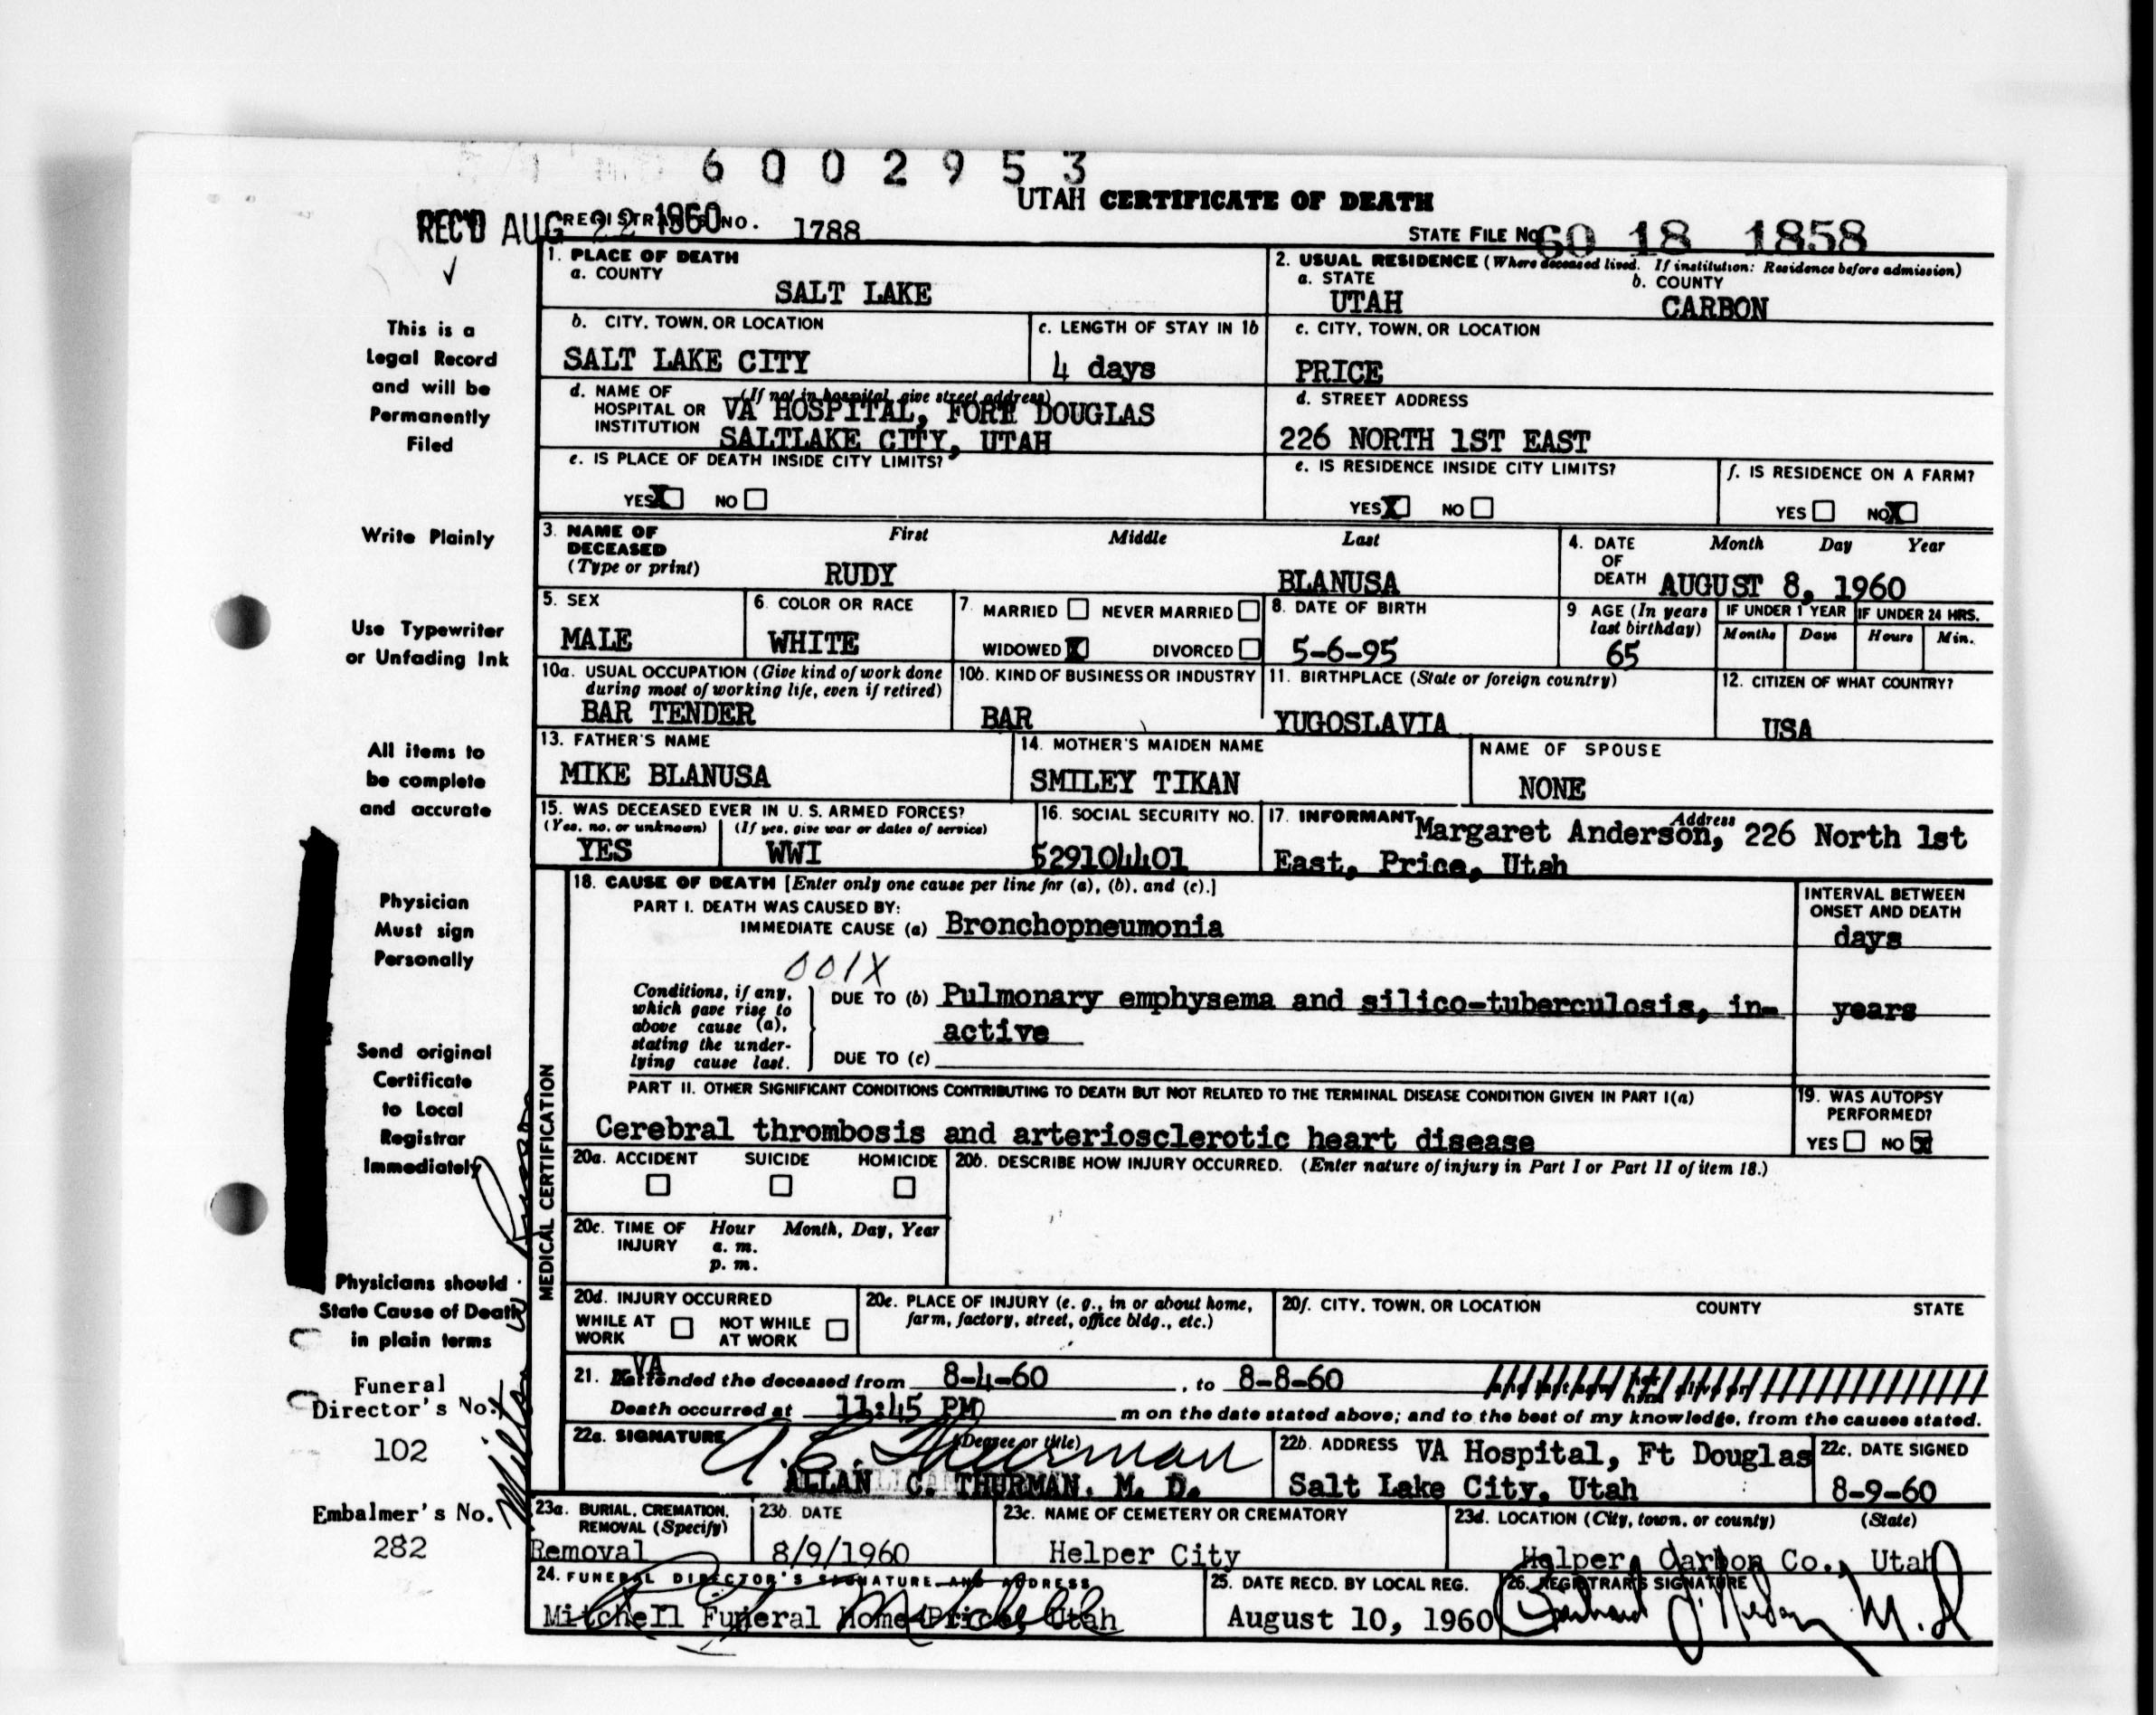 6 0 0 2 9 5 3
UTAH CERTIFICATE OF DEATH
REC'D AUG 22 1960 REGISTRAR'S NO. 1788
STATE FILE NO. 60 18 1858
This is a
Legal Record
and will be
Permanently
Filed
Write Plainly
Use Typewriter
or Unfading Ink
All items to
be complete
and accurate
Physician
Must sign
Personally
Send original
Certificate
to Local
Registrar
Immediately
Physicians should
State Cause of Death
in plain terms
Funeral
Director's No.
102
Embalmer's No.
282
1. PLACE OF DEATH
a. COUNTY
SALT LAKE
2. USUAL RESIDENCE (Where deceased lived. If institution: Residence before admission)
a. STATE
UTAH
b. COUNTY
CARBON
b. CITY, TOWN, OR LOCATION
SALT LAKE CITY
c. LENGTH OF STAY IN 1b
4 days
c. CITY, TOWN, OR LOCATION
PRICE
d. NAME OF HOSPITAL OR INSTITUTION (If not in hospital, give street address)
VA HOSPITAL, FORT DOUGLAS
SALTLAKE CITY, UTAH
d. STREET ADDRESS
226 NORTH 1ST EAST
e. IS PLACE OF DEATH INSIDE CITY LIMITS?
YES X NO
e. IS RESIDENCE INSIDE CITY LIMITS?
YES X NO
f. IS RESIDENCE ON A FARM?
YES NO X
3. NAME OF DECEASED (Type or print)
First Middle Last
RUDY BLANUSA
4. DATE OF DEATH Month Day Year
AUGUST 8, 1960
5. SEX
MALE
6. COLOR OR RACE
WHITE
7. MARRIED NEVER MARRIED
WIDOWED X DIVORCED
8. DATE OF BIRTH
5-6-95
9 AGE (In years last birthday)
65
IF UNDER 1 YEAR IF UNDER 24 HRS.
Months Days Hours Min.
10a. USUAL OCCUPATION (Give kind of work done during most of working life, even if retired)
BAR TENDER
10b. KIND OF BUSINESS OR INDUSTRY
BAR
11. BIRTHPLACE (State or foreign country)
YUGOSLAVIA
12. CITIZEN OF WHAT COUNTRY?
USA
13. FATHER'S NAME
MIKE BLANUSA
14. MOTHER'S MAIDEN NAME
SMILEY TIKAN
NAME OF SPOUSE
NONE
15. WAS DECEASED EVER IN U. S. ARMED FORCES?
(Yes, no. or unknown) (If yes, give war or dates of service)
YES WWI
16. SOCIAL SECURITY NO.
529104401
17. INFORMANT Address
Margaret Anderson, 226 North 1st
East, Price, Utah
MEDICAL CERTIFICATION
18. CAUSE OF DEATH [Enter only one cause per line for (a), (b), and (c).]
PART I. DEATH WAS CAUSED BY:
IMMEDIATE CAUSE (a) Bronchopneumonia
INTERVAL BETWEEN ONSET AND DEATH
days
001X
Conditions, if any, which gave rise to above cause (a), stating the underlying cause last.
DUE TO (b) Pulmonary emphysema and silico-tuberculosis, in-
active
years
DUE TO (c)
PART II. OTHER SIGNIFICANT CONDITIONS CONTRIBUTING TO DEATH BUT NOT RELATED TO THE TERMINAL DISEASE CONDITION GIVEN IN PART I(a)
Cerebral thrombosis and arteriosclerotic heart disease
19. WAS AUTOPSY PERFORMED?
YES NO X
20a. ACCIDENT SUICIDE HOMICIDE
20b. DESCRIBE HOW INJURY OCCURRED. (Enter nature of injury in Part I or Part II of item 18.)
20c. TIME OF INJURY Hour Month, Day, Year
a. m.
p. m.
20d. INJURY OCCURRED
WHILE AT WORK NOT WHILE AT WORK
20e. PLACE OF INJURY (e. g., in or about home, farm, factory, street, office bldg., etc.)
20f. CITY, TOWN, OR LOCATION COUNTY STATE
21. VA attended the deceased from 8-4-60, to 8-8-60
Death occurred at 11:45 PM m on the date stated above; and to the best of my knowledge, from the causes stated.
22a. SIGNATURE (Degree or title)
A. C. Thurman
ALLAN C. THURMAN, M. D.
22b. ADDRESS VA Hospital, Ft Douglas
Salt Lake City, Utah
22c. DATE SIGNED
8-9-60
23a. BURIAL, CREMATION, REMOVAL (Specify)
Removal
23b. DATE
8/9/1960
23c. NAME OF CEMETERY OR CREMATORY
Helper City
23d. LOCATION (City, town, or county) (State)
Helper, Carbon Co., Utah
24. FUNERAL DIRECTOR'S SIGNATURE AND ADDRESS
Mitchell Funeral Home Price, Utah
25. DATE RECD. BY LOCAL REG.
August 10, 1960
26. REGISTRAR'S SIGNATURE
M.D